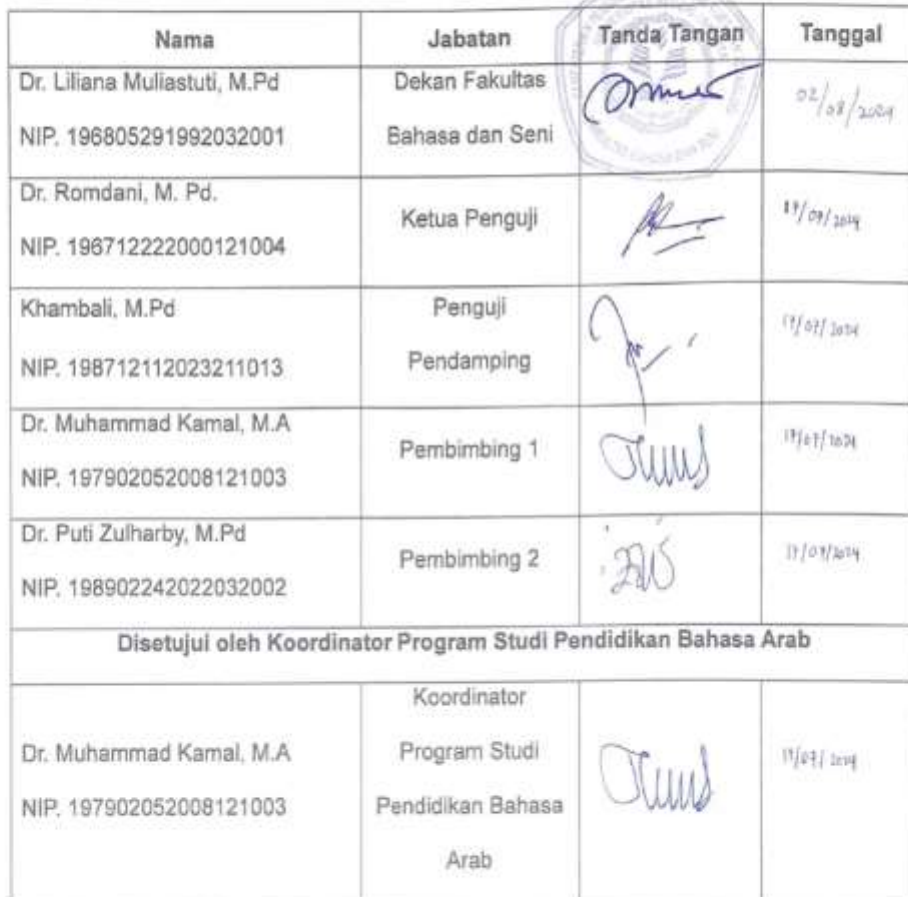 Nama Jabatan Tanda Tangan Tanggal
Dr. Liliana Muliastuti, M.Pd
NIP. 196805291992032001
Dekan Fakultas
Bahasa dan Seni
02/08/2024
Dr. Romdani, M. Pd.
NIP. 196712222000121004
Ketua Penguji
Khambali, M.Pd
NIP. 198712112023211013
Penguji
Pendamping
Dr. Muhammad Kamal, M.A
NIP. 197902052008121003
Pembimbing 1
Dr. Puti Zulharby, M.Pd
NIP. 198902242022032002
Pembimbing 2
Disetujui oleh Koordinator Program Studi Pendidikan Bahasa Arab
Dr. Muhammad Kamal, M.A
NIP. 197902052008121003
Koordinator
Program Studi
Pendidikan Bahasa
Arab